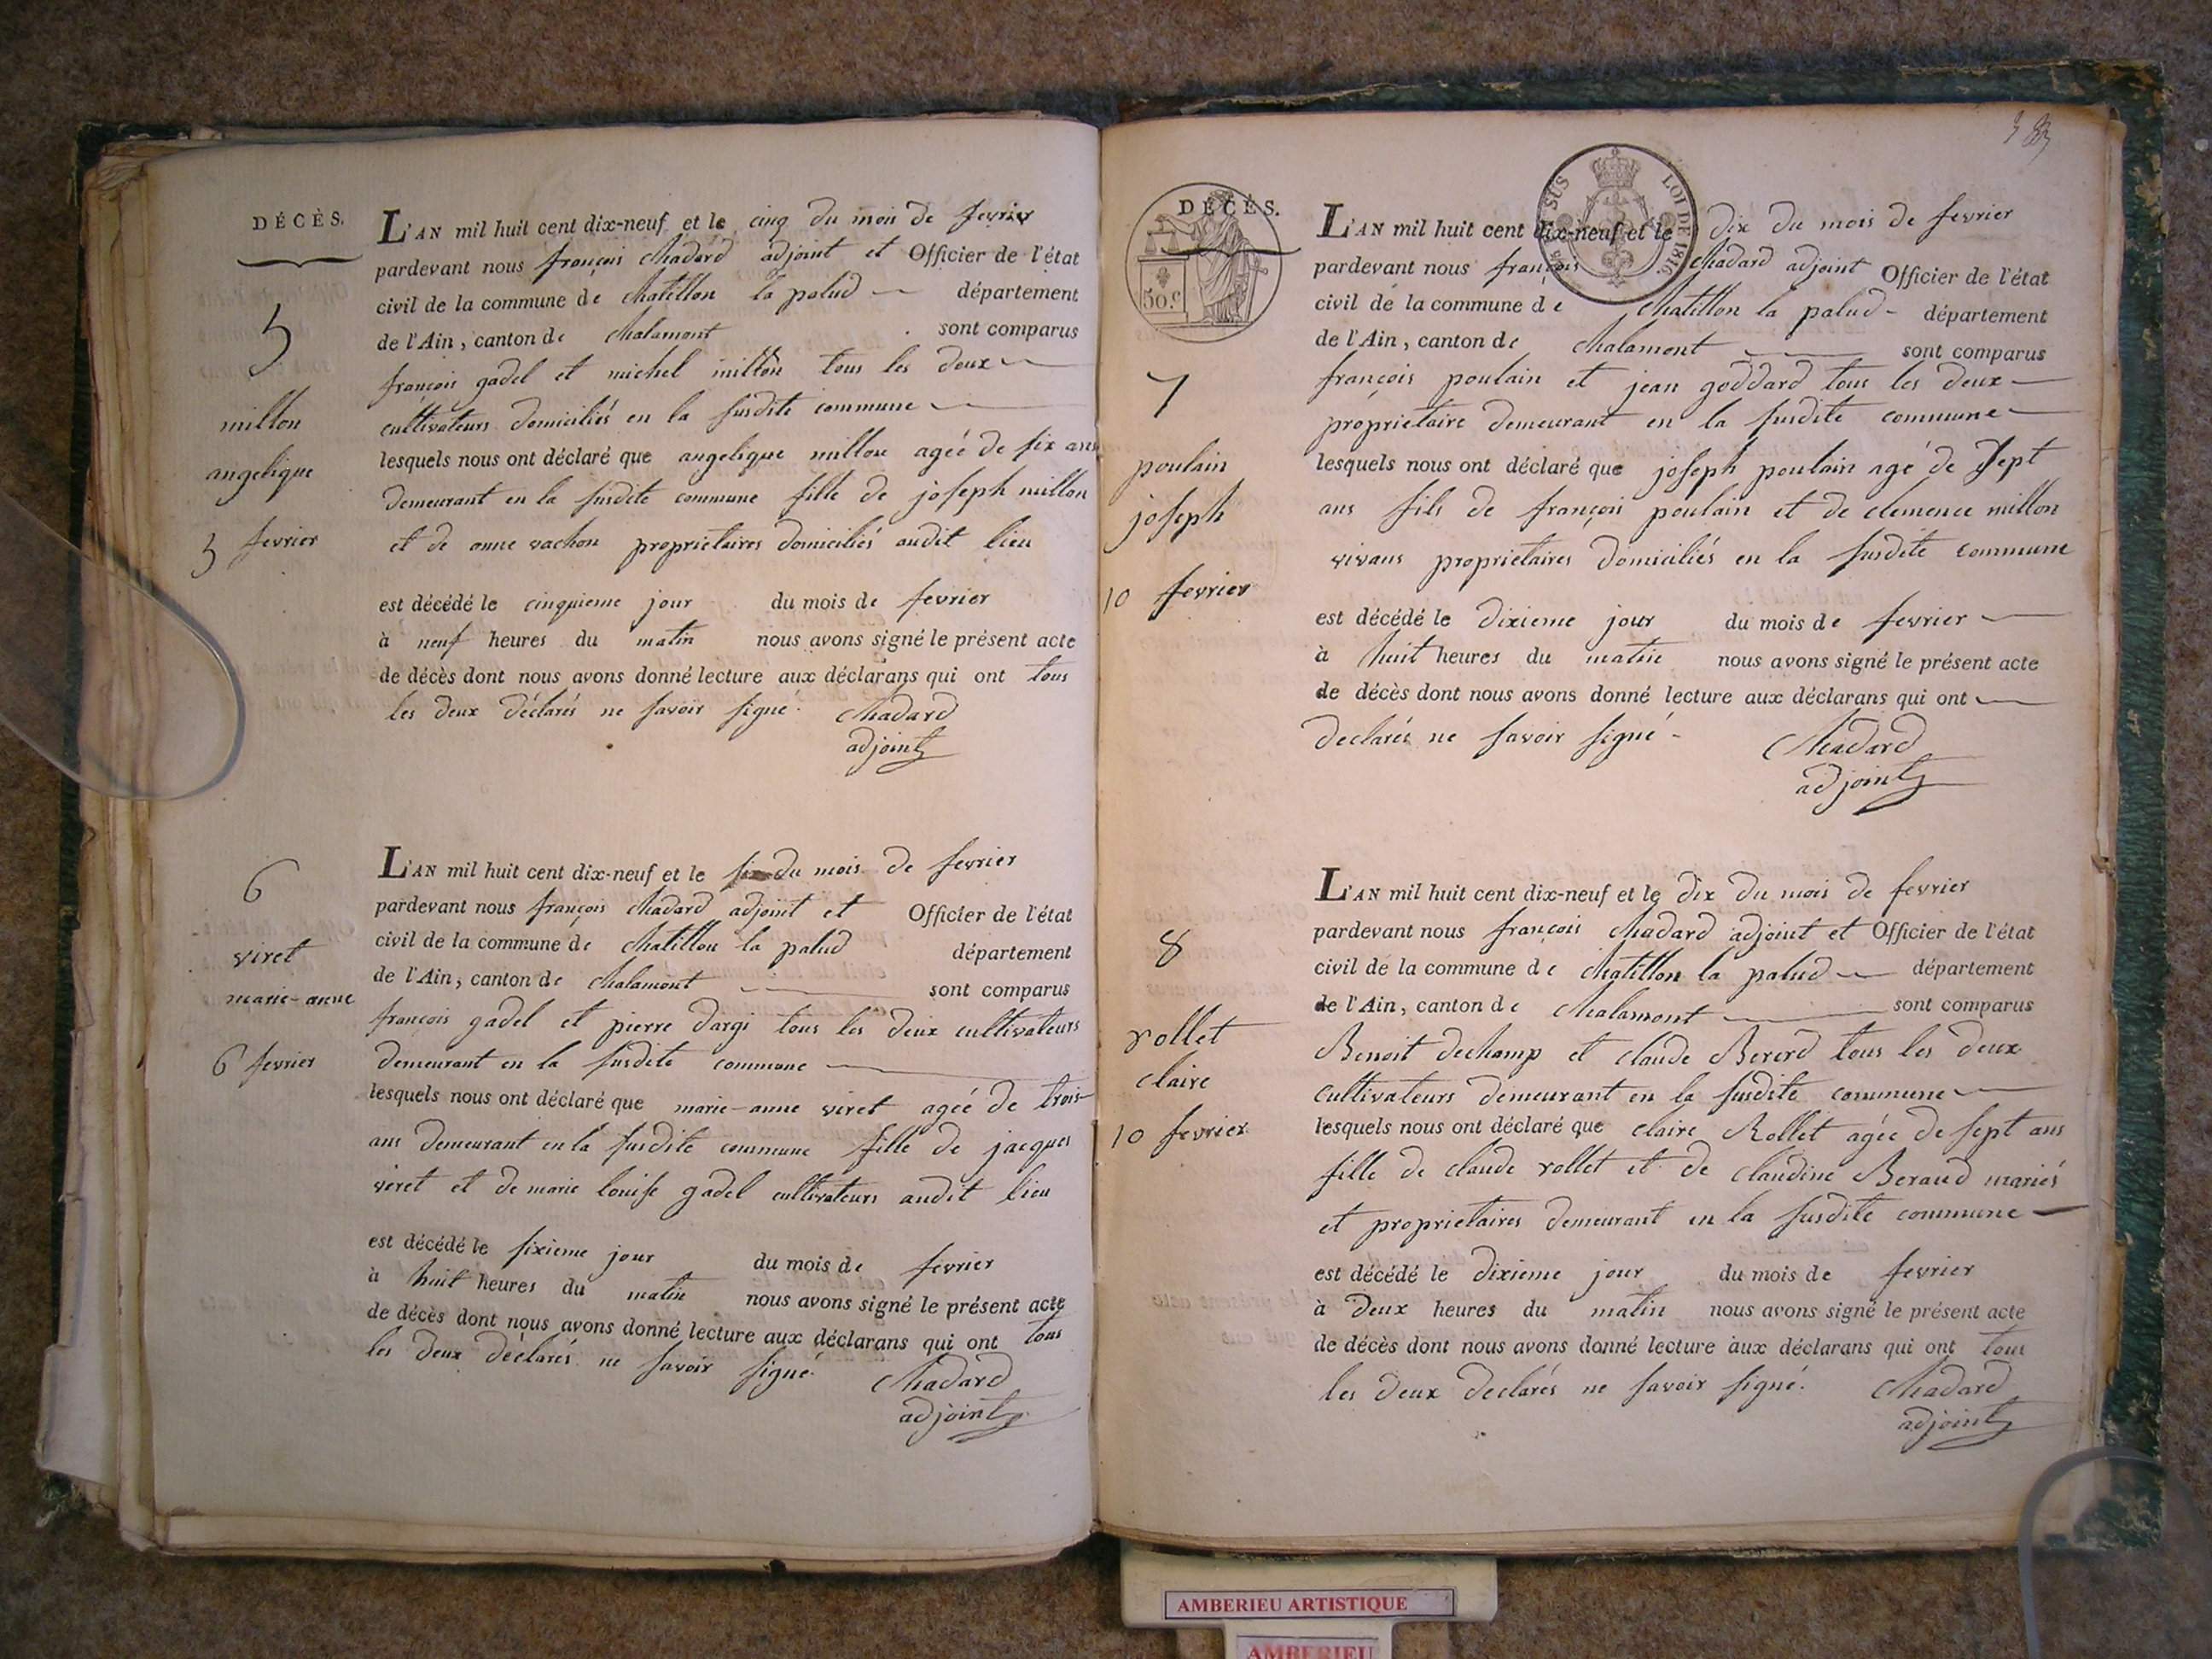 DÉCÈS.
L'AN mil huit cent dix-neuf et le cinq du mois de fevrier
pardevant nous françois Chadard adjoint et Officier de l'état
civil de la commune de Chatillon la palud département
de l'Ain, canton de Chalamont sont comparus
françois gadel et michel millon tous les deux
cultivateurs domiciliés en la susdite commune
lesquels nous ont déclaré que angelique millon agée de six ans
demeurant en la susdite commune fille de joseph millon
et de anne vachon proprietaires domiciliés audit lieu
est décédé le cinquieme jour du mois de fevrier
à neuf heures du matin nous avons signé le présent acte
de décès dont nous avons donné lecture aux déclarans qui ont tous
les deux déclarés ne savoir signé. Chadard
adjoint
5
millon
angelique
5 fevrier
L'AN mil huit cent dix-neuf et le six du mois de fevrier
pardevant nous françois Chadard adjoint et Officier de l'état
civil de la commune de Chatillon la palud département
de l'Ain, canton de Chalamont sont comparus
françois gadel et pierre dargi tous les deux cultivateurs
demeurant en la susdite commune
lesquels nous ont déclaré que marie-anne viret agée de trois
ans demeurant en la susdite commune fille de jacques
viret et de marie louise gadel cultivateurs audit lieu
est décédé le sixieme jour du mois de fevrier
à huit heures du matin nous avons signé le présent acte
de décès dont nous avons donné lecture aux déclarans qui ont tous
les deux déclarés ne savoir signé. Chadard
adjoint
6
viret
marie-anne
6 fevrier
DÉCÈS.
50.c
SUS
LOI DE 1816
L'AN mil huit cent dix-neuf et le dix du mois de fevrier
pardevant nous françois Chadard adjoint Officier de l'état
civil de la commune de Chatillon la palud département
de l'Ain, canton de Chalamont sont comparus
françois poulain et jean goddard tous les deux
proprietaire demeurant en la susdite commune
lesquels nous ont déclaré que joseph poulain agé de Sept
ans fils de françois poulain et de clemence millon
vivans proprietaires domiciliés en la susdite commune
est décédé le dixieme jour du mois de fevrier
à huit heures du matin nous avons signé le présent acte
de décès dont nous avons donné lecture aux déclarans qui ont
declarés ne savoir signé Chadard
adjoint
7
poulain
joseph
10 fevrier
L'AN mil huit cent dix-neuf et le dix du mois de fevrier
pardevant nous françois Chadard adjoint et Officier de l'état
civil de la commune de Chatillon la palud département
de l'Ain, canton de Chalamont sont comparus
Benoit dechamp et claude Bererd tous les deux
cultivateurs demeurant en la susdite commune
lesquels nous ont déclaré que claire Rollet agée de sept ans
fille de claude rollet et de claudine Beraud mariés
et proprietaires demeurant en la susdite commune
est décédé le dixieme jour du mois de fevrier
à deux heures du matin nous avons signé le présent acte
de décès dont nous avons donné lecture aux déclarans qui ont tous
les deux declarés ne savoir signé. Chadard
adjoint
8
rollet
claire
10 fevrier
AMBERIEU ARTISTIQUE
AMBERIEU